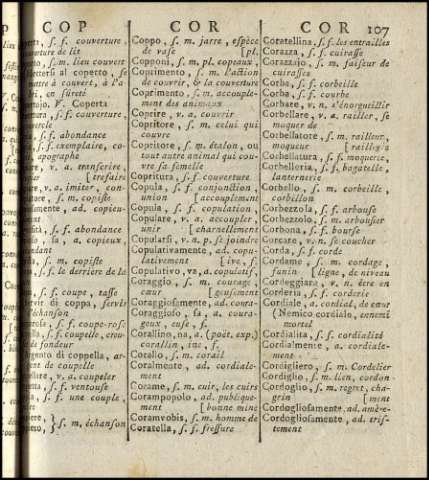 COP
COR
COR 107
s. f. couverture
couverture de lit
s. m. lieu couvert
Mettersi al coperto, se
mettre à couvert, à l'a
bri, en sûreté
V. Coperta
s. f. couverture,
s. f. abondance
s. f. exemplaire, co-
apographe
v. a. transcrire
[trefaire
v. a. imiter, con-
s. m. copiste
ad. copieu-
s. f. abondance
a, copieux,
s. m. copiste
s. f. le derriere de la
s. f. coupe, tasse
di coppa, servir
d'échanson
s. f. coupe-rose
s. f. coupelle, crou-
de fondeur
argento di coppella, ar-
de coupelle
v. a. coupeler
s. f. ventouse
s. f. une couple,
s. m. échanson
Coppo, s. m. jarre, espèce
de vase [pl.
Copponi, s. m. pl. copeaux,
Coprimento, s. m. l'action
de couvrir, & la couverture
Coprimento, s. m. accouple-
ment des animaux
Coprire, v. a. couvrir
Copritore, s. m. celui qui
couvre
Copritore, s. m. étalon, ou
tout autre animal qui cou-
vre sa femelle
Copritura, s. f. couverture
Copula, s. f. conjonction,
union [accouplement
Copula, s. f. copulation,
Copulare, v. n. accoupler,
unir [charnellement
Copularsi, v. n. p. se joindre
Copulativamente, ad. copu-
lativement [ive, f.
Copulativo, va, a. copulatif,
Coraggio, s. m. courage,
cœur [geusement
Coraggiosamente, ad. coura-
Coraggioso, sa, a. coura-
geux, euse, f.
Corallino, na, a. (poët. exp.)
corallin, ine, f.
Corallo, s. m. corail
Coralmente, ad. cordiale-
ment
Corame, s. m. cuir, les cuirs
Corampopolo, ad. publique-
ment [bonne mine
Coramvobis, s. m. homme de
Coratella, s. f. fressure
Coratellina, s. f. les entrailles
Corazza, s. f. cuirasse
Corazzajo, s. m. faiseur de
cuirasses
Corba, s. f. corbeille
Corba, s. f. courbe
Corbare, v. n. s'énorgueillir
Corbellare, v. a. railler, se
moquer de
Corbellatore, s. m. railleur,
moqueur [raillerie
Corbellatura, s. f. moquerie,
Corbelleria, s. f. bagatelle,
lanternerie
Corbello, s. m. corbeille,
corbillon
Corbezzola, s. f. arbouse
Corbezzolo, s. m. arbousier
Corbona, s. f. bourse
Corcare, v. n. se coucher
Corda, s. f. corde
Cordamo, s. m. cordage,
funin [ligne, de niveau
Cordeggiare, v. n. être en
Corderia, s. f. corderie
Cordiale, a. cordial, de cœur
(Nemico cordiale, ennemi
mortel
Cordialità, s. f. cordialité
Cordialmente, a. cordiale-
ment.
Cordigliero, s. m. Cordelier
Cordiglio, s. m. lien, cordon
Cordoglio, s. m. regret, cha-
grin [ment
Cordogliosamente, ad. amère-
Cordogliosamente, ad. tris-
tement